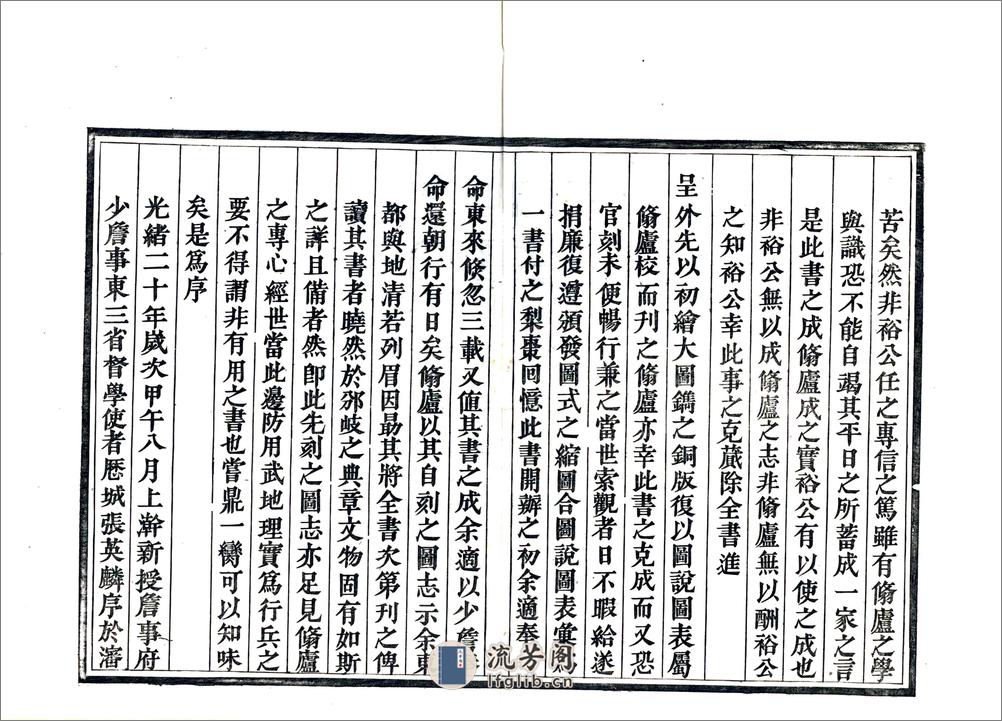 苦矣然非裕公任之專信之篤雖有脩廬之學
與識恐不能自竭其平日之所蓄成一家之言
是此書之成脩廬成之實裕公有以使之成也
非裕公無以成脩廬之志非脩廬無以酬裕公
之知裕公幸此事之克蕆除全書進
呈外先以初繪大圖鐫之銅版復以圖說圖表屬
脩廬校而刊之脩廬亦幸此書之克成而又恐
官刻未便暢行兼之當世索觀者日不暇給遂
捐廉復遵頒發圖式之縮圖合圖說圖表彙
一書付之梨棗回憶此書開辦之初余適奉
命東來倏忽三載又值其書之成余適以少詹
命還朝行有日矣脩廬以其自刻之圖志示余東
都輿地清若列眉因勗其將全書次第刊之俾
讀其書者曉然於邠岐之典章文物固有如斯
之詳且備者然卽此先刻之圖志亦足見脩廬
之專心經世當此邊防用武地理實爲行兵之
要不得謂非有用之書也嘗鼎一臠可以知味
矣是爲序
光緒二十年歲次甲午八月上澣新授詹事府
少詹事東三省督學使者歷城張英麟序於瀋
流芳阁
lfglib.cn